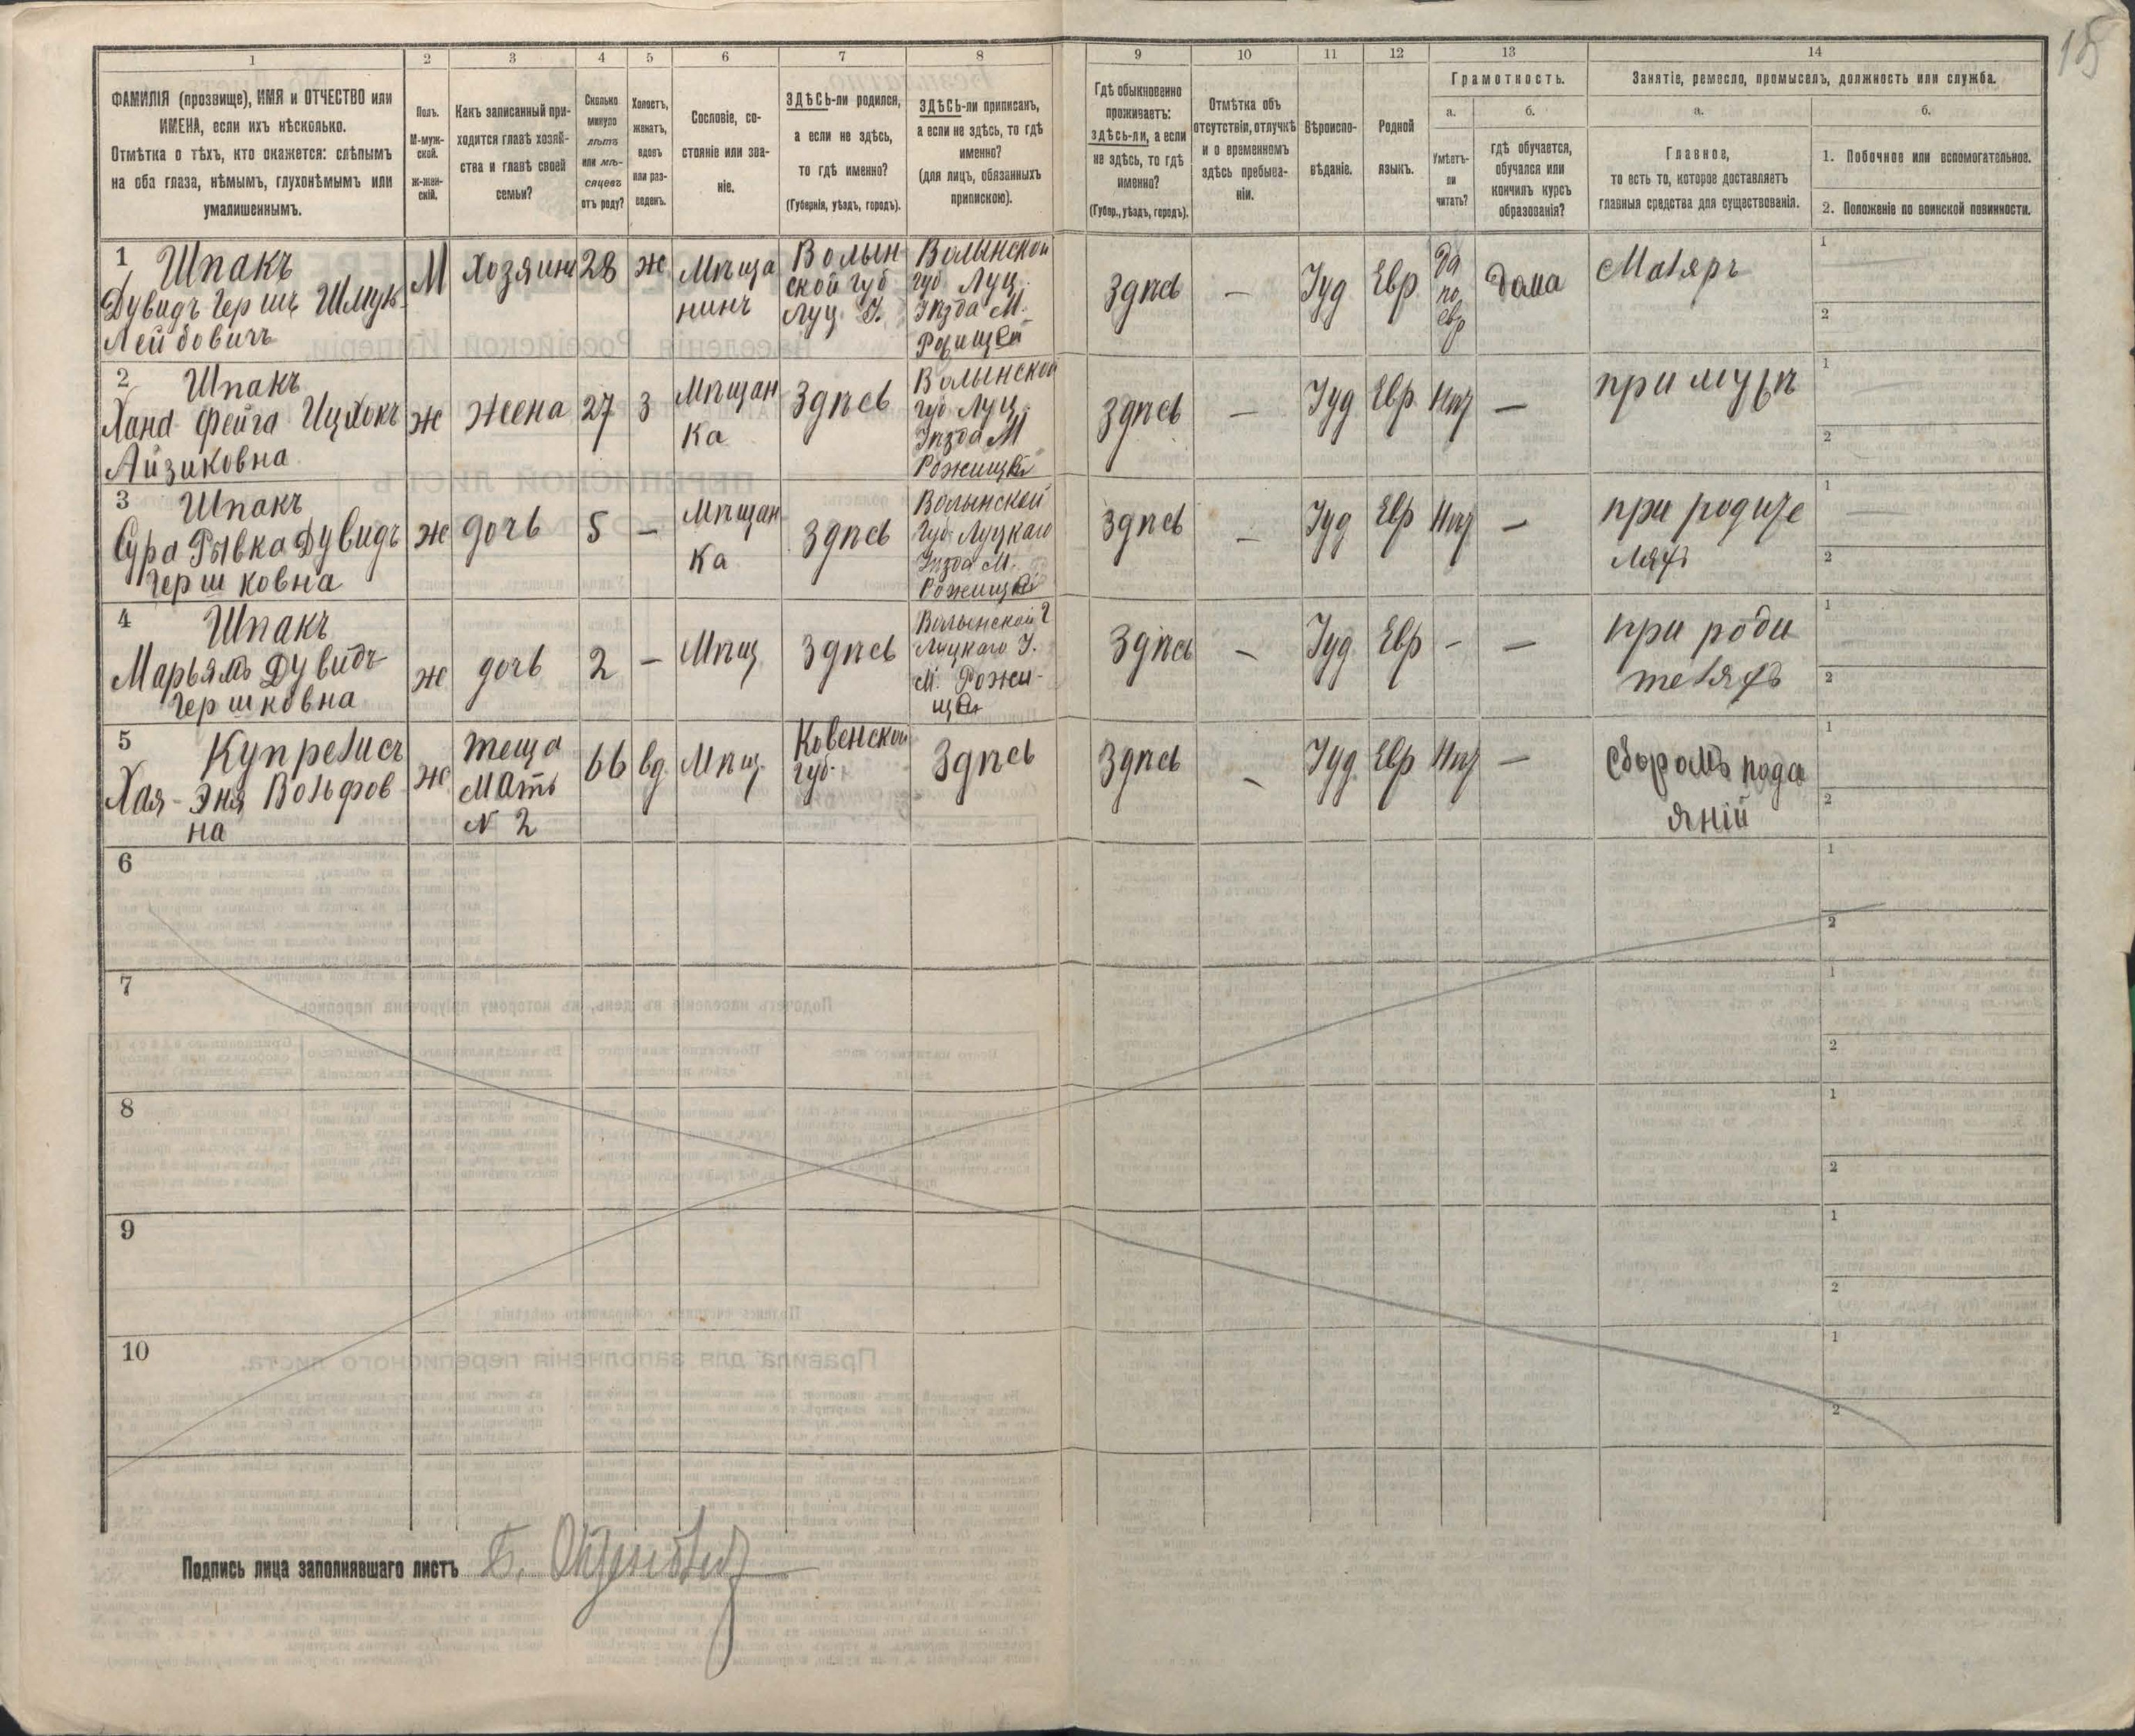 185
1 2 3 4 5 6 7 8 9 10 11 12 13 14
ФАМИЛІЯ (прозвище), ИМЯ и ОТЧЕСТВО или
ИМЕНА, если ихъ нѣсколько.
Отмѣтка о тѣхъ, кто окажется: слѣпымъ
на оба глаза, нѣмымъ, глухонѣмымъ или
умалишеннымъ.
Полъ.
М-муж-
ской.
Ж-жен-
скій.
Какъ записанный при-
ходится главѣ хозяй-
ства и главѣ своей
семьи?
Сколько
минуло
лѣтъ
или мѣ-
сяцевъ
отъ роду?
Холостъ,
женатъ,
вдовъ
или раз-
веденъ.
Сословіе, со-
стояніе или зва-
ніе.
ЗДѢСЬ-ли родился,
а если не здѣсь,
то гдѣ именно?
(Губернія, уѣздъ, городъ).
ЗДѢСЬ-ли приписанъ,
а если не здѣсь, то гдѣ
именно?
(для лицъ, обязанныхъ
припискою).
Гдѣ обыкновенно
проживаетъ:
здѣсь-ли, а если
не здѣсь, то гдѣ
именно?
(Губер., уѣздъ, городъ).
Отмѣтка объ
отсутствіи, отлучкѣ
и о временномъ
здѣсь пребыва-
ніи.
Вѣроиспо-
вѣданіе.
Родной
языкъ.
Грамотность.
а.
Умѣетъ-
ли
читать?
б.
гдѣ обучается,
обучался или
кончилъ курсъ
образованія?
Занятіе, ремесло, промыселъ, должность или служба.
а.
Главное,
то есть то, которое доставляетъ
главныя средства для существованія.
б.
1. Побочное или вспомогательное.
2. Положеніе по воинской повинности.
1
Шпакъ
Дувидъ Гершъ Шмуль
Лейбовичъ
М
Хозяинъ
28
ж
Мѣща
нинъ
Волын
ской губ
Луц. У.
Волынской
губ Луц.
Уѣзда М.
Рожище
Здѣсь
—
Іуд
Евр
да
по
евр
дома
Маляръ
1
2
2
Шпакъ
Хана Фейга Ицхокъ
Айзиковна
ж
жена
27
з
Мѣщан
ка
Здѣсь
Волынской
губ Луц.
Уѣзда М
Рожище
Здѣсь
—
Іуд
Евр
Нѣт
—
при мужѣ
1
2
3
Шпакъ
Сура Рывка Дувидъ
Гершковна
ж
дочь
5
—
Мѣщан
ка
Здѣсь
Волынской
Губ Луцкаго
Уѣзда М.
Рожище
Здѣсь
—
Іуд
Евр
Нѣт
—
при родите
ляхъ
1
2
4
Шпакъ
Марьямъ Дувидъ
Гершковна
ж
дочь
2
—
Мѣщ
Здѣсь
Волынской Г
Луцкаго У.
М. Рожи-
ще
Здѣсь
—
Іуд
Евр
-
—
при роди
теляхъ
1
2
5
Купрелисъ
Хая-Эня Вольфов
на
ж
теща
мать
N 2
66
вд
Мѣщ.
Ковенской
губ.
Здѣсь
Здѣсь
—
Іуд
Евр
Нѣт
—
сборомъ пода
яній
1
2
6
1
2
7
1
2
8
1
2
9
1
2
10
1
2
Подпись лица заполнявшаго листъ